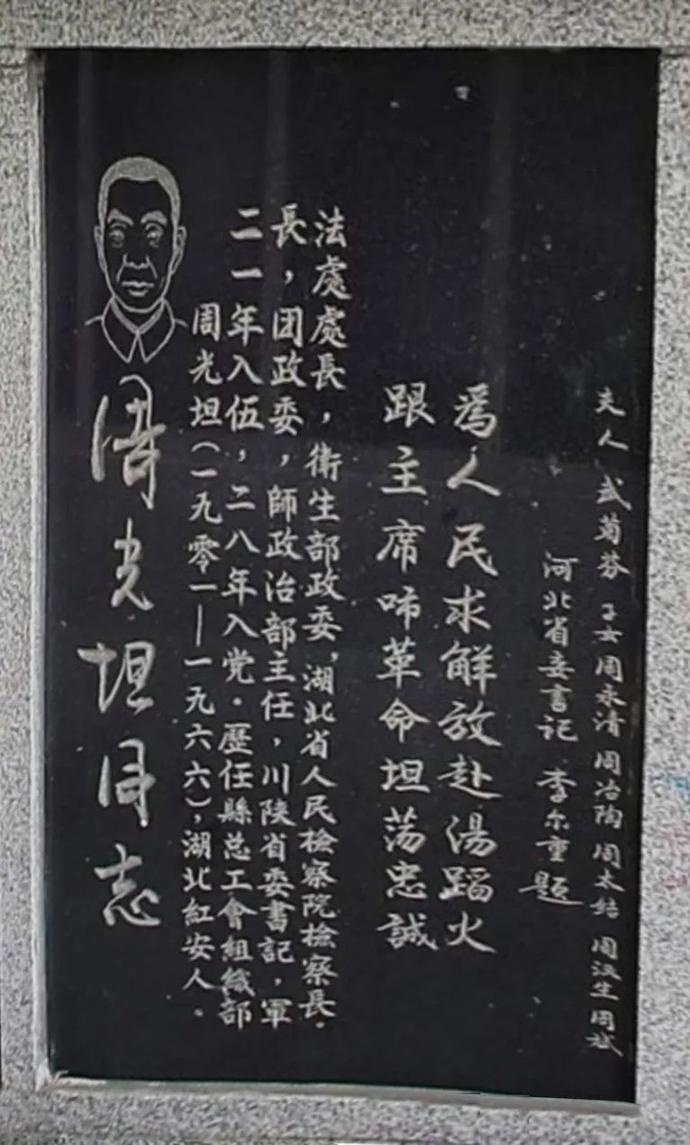 周光坦同志
周光坦（一九零一—一九六六），湖北紅安人。
二一年入伍，二八年入党。歷任縣总工會組織部
長，团政委，師政治部主任，川陝省委書記，軍
法處處長，衛生部政委，湖北省人民檢察院檢察長。
為人民求解放赴湯蹈火
跟主席啼革命坦荡忠誠
河北省委書记 李尔重題
夫人 武菊芬 子女 周永清 周冶陶 周太結 周汲生 周斌